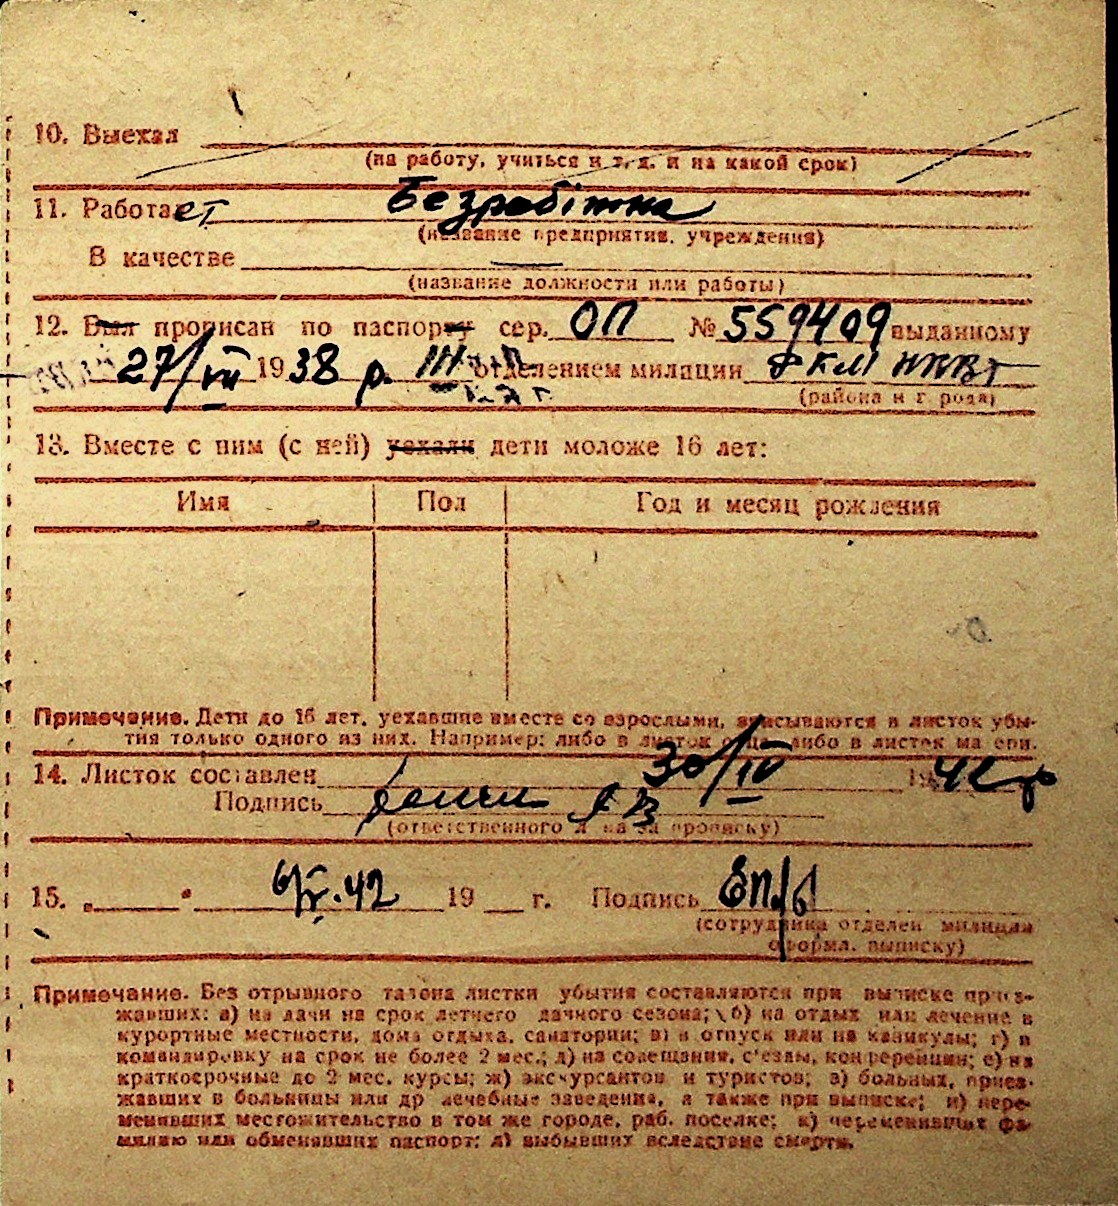 10. Выехал
(на работу, учиться и т. д. и на какой срок)
11. Работает Безробітна
(название предприятия, учреждения)
В качестве —
(название должности или работы)
12. Был прописан по паспорту сер. ОП № 559409 выданному
27/VII 1938 р. III отделением милиции РКМ НКВД
(района и г. рода)
13. Вместе с ним (с ней) уехали дети моложе 16 лет:
Имя Пол Год и месяц рождения
Примечание. Дети до 16 лет, уехавшие вместе со взрослыми, вписываются в листок убы-
тия только одного из них. Например: либо в листок отца, либо в листок матери.
14. Листок составлен 30/IV 1942 р
Подпись
(ответственного лица за прописку)
15. „ “ 6/V.42 19 г. Подпись
(сотрудника отделен. милиции
оформл. выписку)
Примечание. Без отрывного талона листки убытия составляются при выписке приез-
жавших: а) на дачи на срок летнего дачного сезона; б) на отдых или лечение в
курортные местности, дома отдыха, санатории; в) в отпуск или на каникулы; г) в
командировку на срок не более 2 мес.; д) на совещания, с'езды, конференции; е) на
краткосрочные до 2 мес. курсы; ж) экскурсантов и туристов; з) больных, приез-
жавших в больницы или др лечебные заведения, а также при выписке; и) пере-
менивших местожительство в том же городе, раб. поселке; к) переменивших фа-
милию или обменявших паспорт; л) выбывших вследствие смерти.